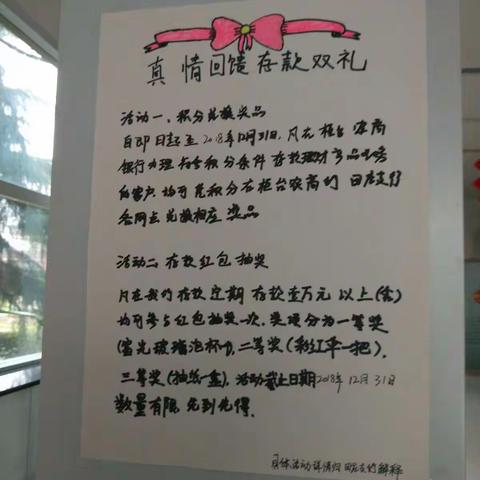 真情回馈存款双礼
活动一、积分兑换奖品
自即日起至2018年12月31日,凡在桓台农商
银行办理符合积分条件存款理财产品业务
的客户,均可凭积分在桓台农商行田庄支行
各网点兑换相应奖品
活动二、存款红包抽奖
凡在我行存款定期存款壹万元以上(含)
均可参与红包抽奖一次,奖项分为一等奖
(富光玻璃泡杯一个),二等奖(彩虹伞一把),
三等奖(抽纸一盒),活动截止日期2018年12月31日
数量有限,先到先得。
具体活动详情归田庄支行解释